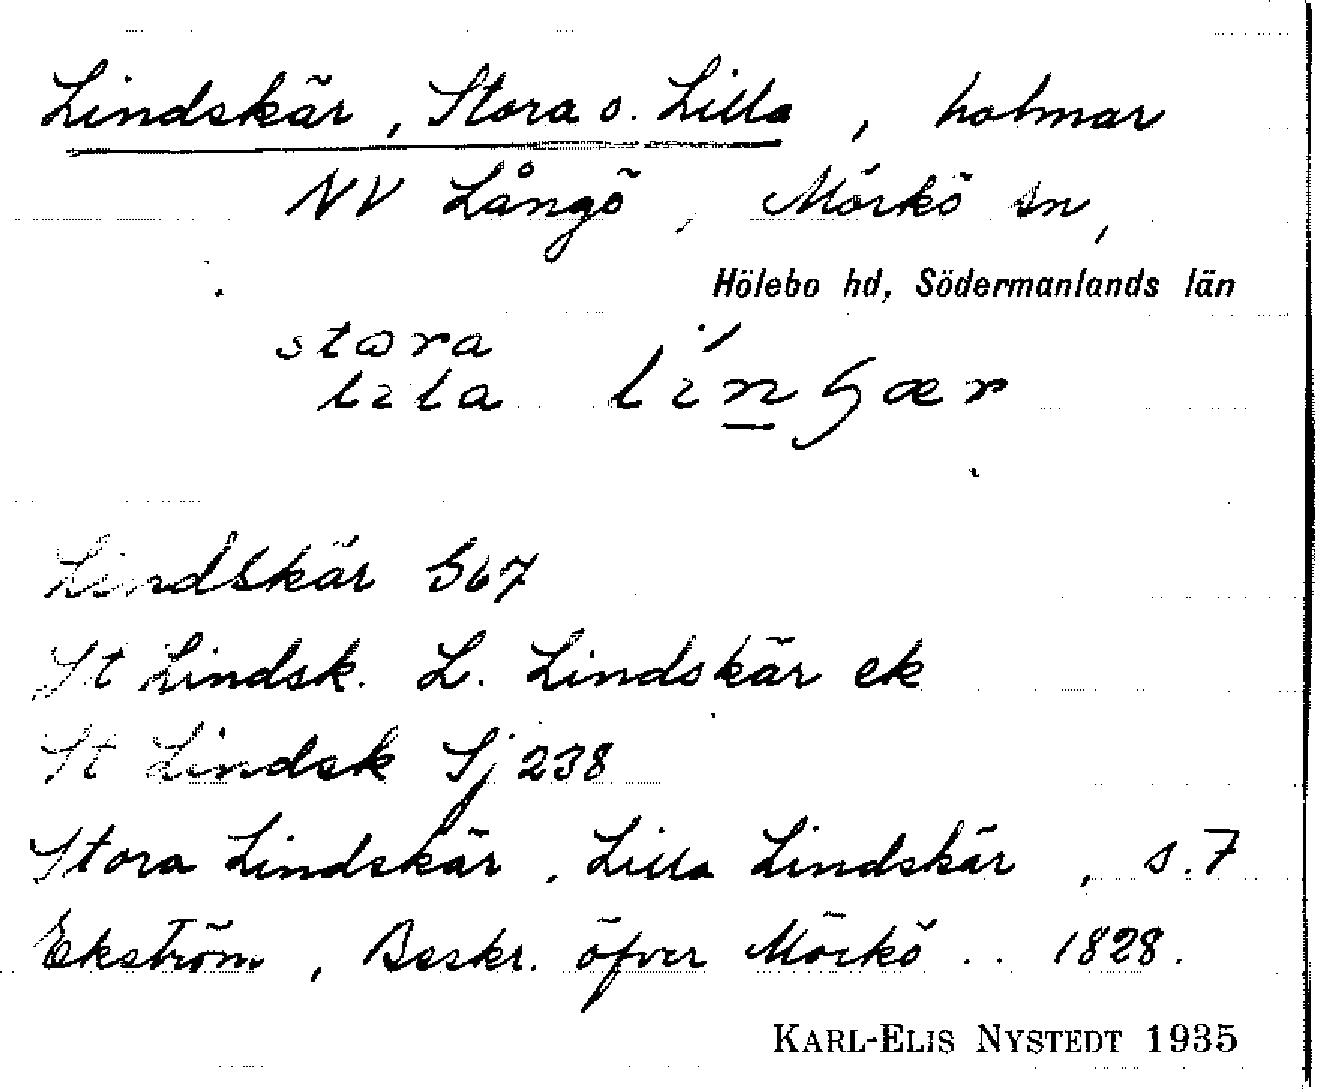 Lindskär, Stora o. Lilla, holmar
NV Långö, Mörkö sn,
Hölebo hd, Södermanlands län
stora
lila
Lindskär 567
St Lindsk. L. Lindskär ek
St Lindsk Sj 238
Stora Lindskär, Lilla Lindskär, s. 7
Ekström, Beskr. öfver Mörkö .. 1828.
KARL-ELIS NYSTEDT 1935